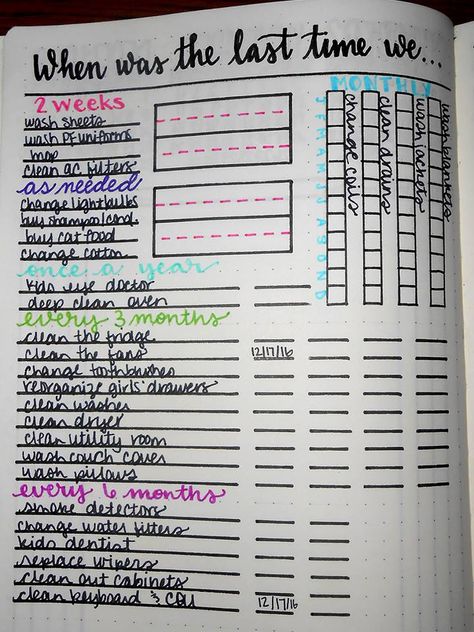 When was the last time we...
MONTHLY
2 weeks
wash sheets
wash PE uniforms
mop
clean ac filters
as needed
change lightbulbs
buy shampoo/cond.
buy cat food
change cotton
J F M A M J J A S O N D
change coils
clean drains
wash jackets
wash blankets
once a year
kids eye doctor
deep clean oven
every 3 months
clean the fridge
clean the fans 12/17/16
change toothbrushes
reorganize girls' drawers
clean washer
clean dryer
clean utility room
wash couch cover
wash pillows
every 6 months
smoke detectors
change water filters
kids dentist
replace wipers
clean out cabinets
clean keyboard & CPU 12/17/16